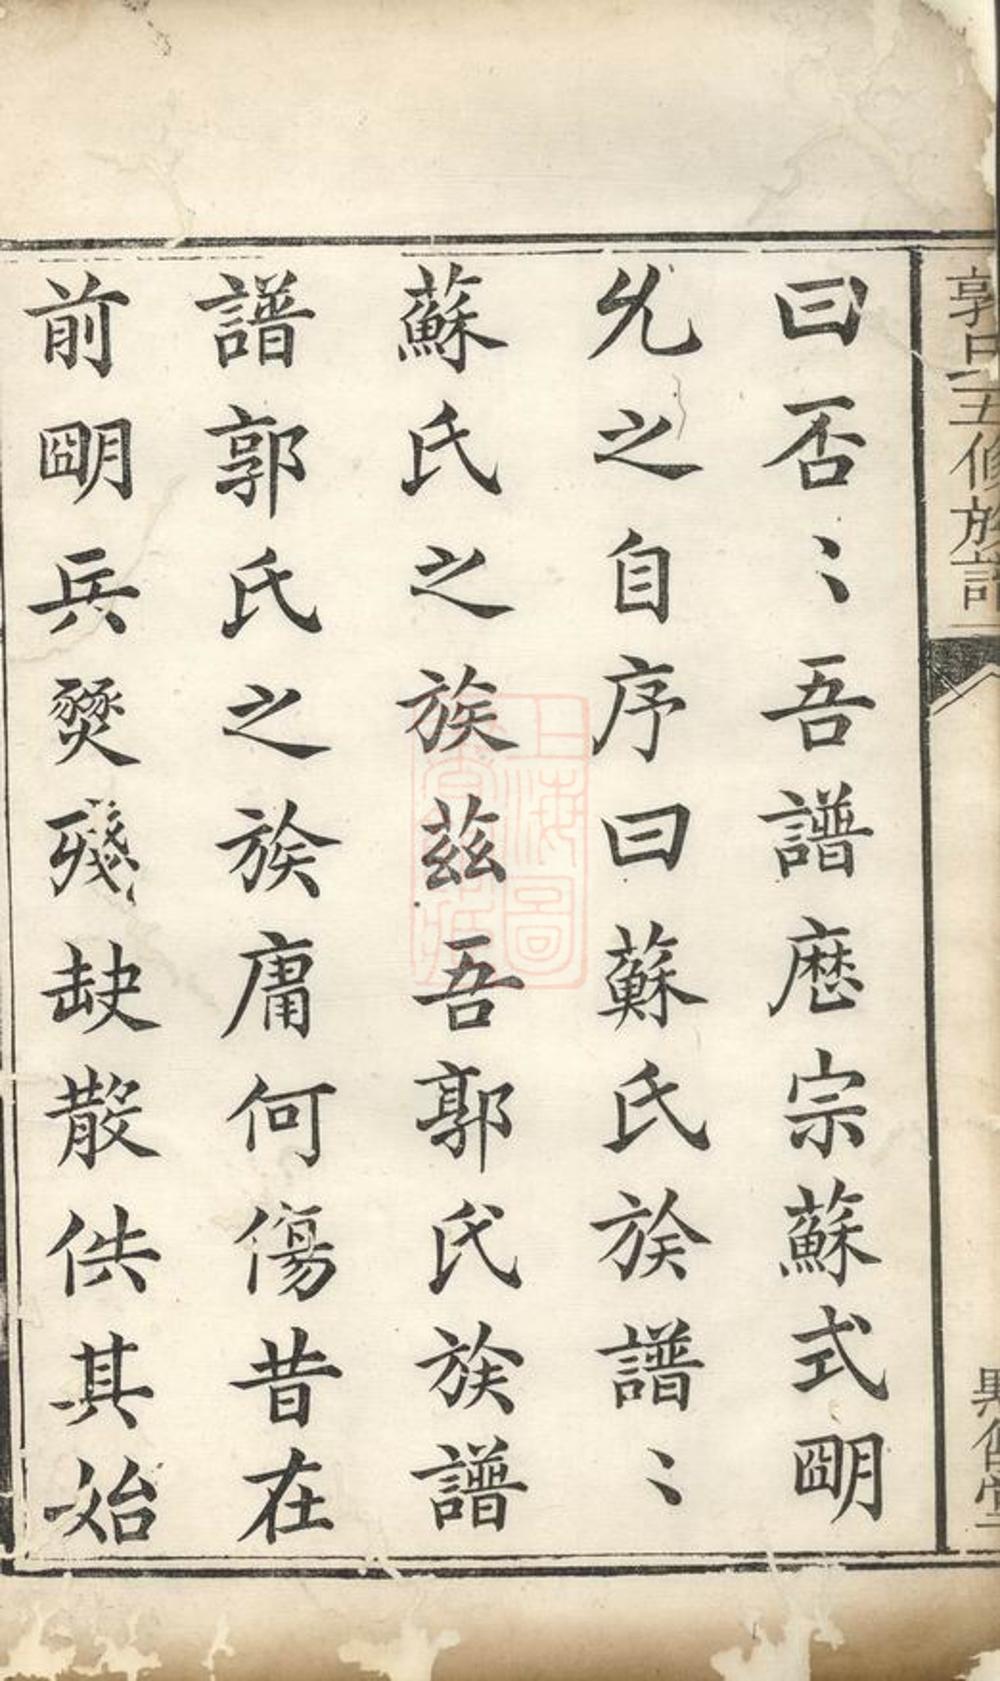 郭氏五修族譜
曰否〻吾譜歴宗蘇式明
允之自序曰蘇氏族譜〻
蘇氏之族茲吾郭氏族譜
譜郭氏之族庸何傷昔在
前明兵燹殘缺散佚其始
上海圖書館藏